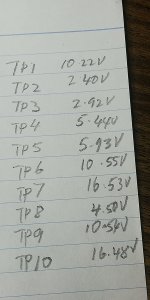 TP1 10.22V
TP2 2.40V
TP3 2.92V
TP4 5.44V
TP5 5.93V
TP6 10.55V
TP7 16.53V
TP8 4.50V
TP9 10.56V
TP10 16.48V